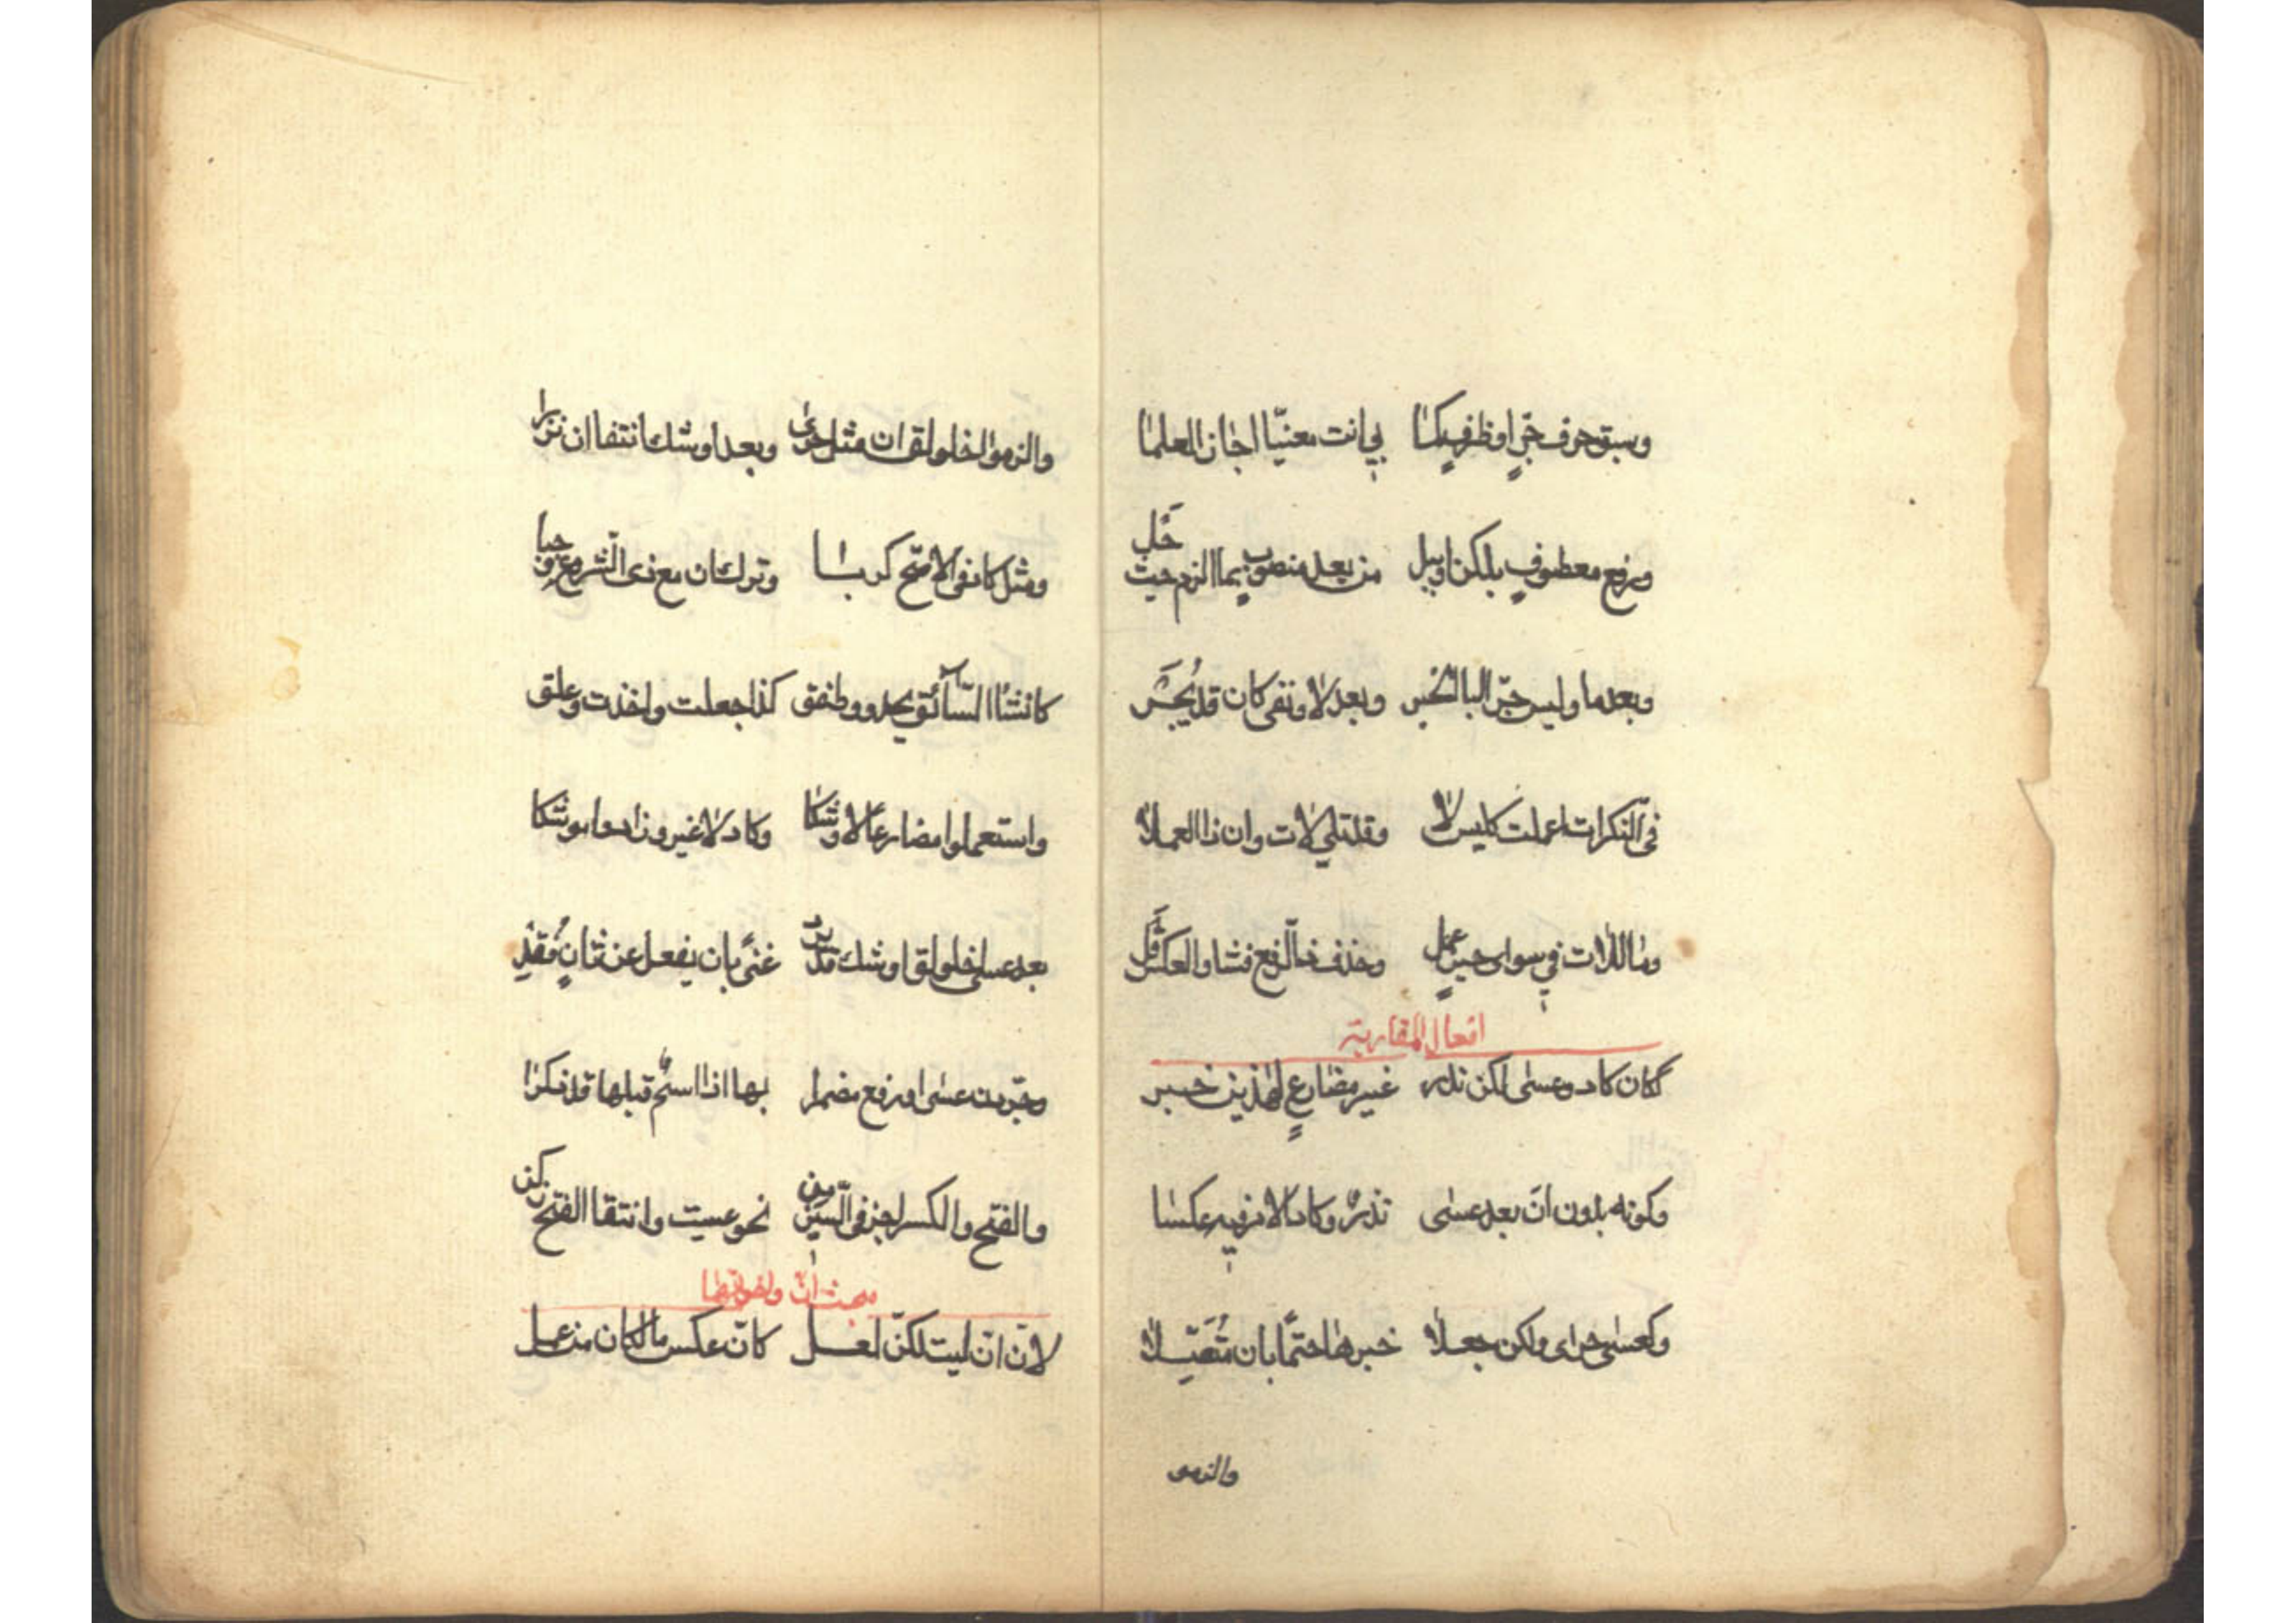 وسبق حرف جرّ او ظرف كما بي انت معنيّا اجاز العلما
ورفع معطوف بلكن او ببل من بعد منصوب بما الزم حيث حَل
وبعد ما وليس جرّ البا الخبر وبعد لا ونفى كان قد يُجَر
فى النكرات اعملت كليس لا وقد تلي لات وان ذا العملا
وما للات في سوى حين عمل وحذف ذى الرفع فشا والعكس قَل
افعال المقاربة
ككان كاد وعسى لكن ندر غير مضارعٍ لهذين خبر
وكونه بدون انْ بعد عسى نذرٌ وكاد الامر فيه عكسا
وكعسى حرى ولكن جعلا خبرها حتمًا بان متّصلا
والزمو
والزموا اخلولق ان مثل حرى وبعد اوشك انتفا ان نزرا
ومثل كاد فى الاصّح كربا وترك ان مع ذى الشروع وجبا
كانشا السّآئق يحدو وطفق كذا جعلت واخذت وعلق
واستعملوا مضارعًا لاوشكا وكاد لا غير وزادوا موشكا
بعد عسى اخلولق اوشك قد يرد غنًى بان يفعل عن ثانٍ فُقِد
وجرّدن عسى او رفع مضمرا بها اذا اسمٌ قبلها قد ذكرا
والفتح والكسر اجز فى السّين من نحو عسيت وانتقا الفتح زكن
مبحث انّ واخواتها
لانّ انّ ليت لكنّ لعل كانّ عكس ما لكان من عمل